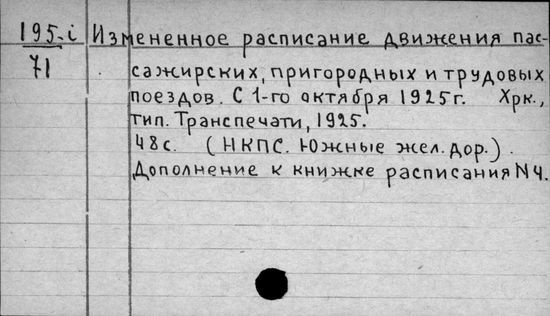 195-i Измененное расписание движения пас-
71 сажирских, пригородных и трудовых
поездов. С 1-го октября 1925г. Хрк.,
тип. Транспечати, 1925.
48с. (НКПС. Южные жел. дор.).
Дополнение к книжке расписания N4.